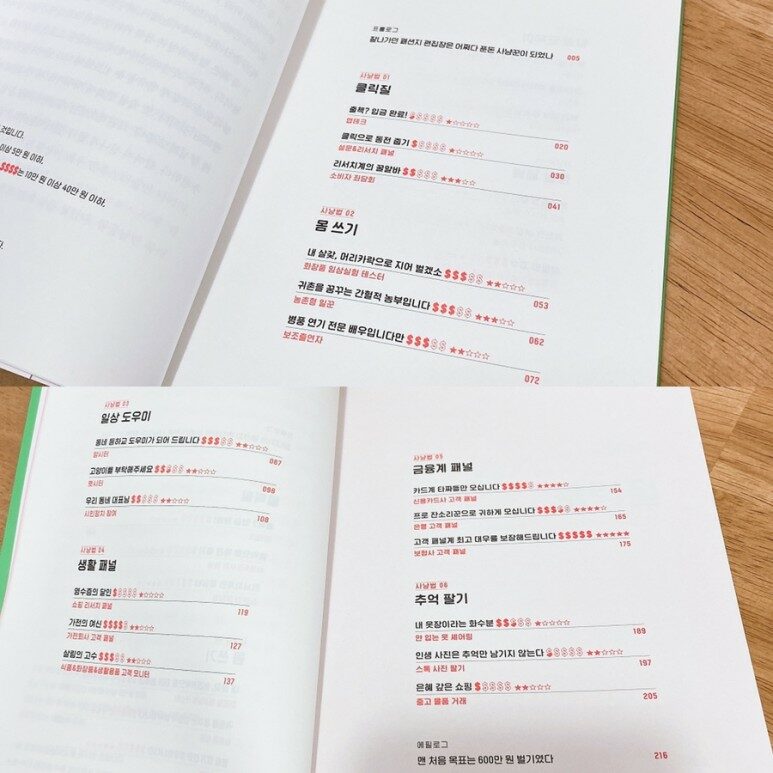 것입니다.
이상 5만 원 이하,
$$$$는 10만 원 이상 40만 원 이하,
다.
프롤로그
잘나가던 패션지 편집장은 어쩌다 푼돈 사냥꾼이 되었나 005
사냥법 01
클릭질
출첵? 입금 완료! $$$$$ ★☆☆☆☆
앱테크 020
클릭으로 동전 줍기 $$$$$ ★☆☆☆☆
설문&리서치 패널 030
리서치계의 꿀알바 $$$$$ ★☆☆☆☆
소비자 좌담회 041
사냥법 02
몸 쓰기
내 살갗, 머리카락으로 지어 벌겠소 $$$$$ ★★☆☆☆
화장품 임상실험 테스터 053
귀촌을 꿈꾸는 간헐적 농부입니다 $$$$$ ★★★☆☆
농촌형 일꾼 062
병풍 연기 전문 배우입니다만 $$$$$ ★★☆☆☆
보조출연자 072
사냥법 03
일상 도우미
동네 등하교 도우미가 되어 드립니다 $$$$$ ★★☆☆☆
맘시터 087
고양이를 부탁해주세요 $$$$$ ★★☆☆☆
캣시터 098
우리 동네 대표님 $$$$$ ★★☆☆☆
시민정치 참여 108
사냥법 04
생활 패널
영수증의 달인 $$$$$ ★☆☆☆☆
쇼핑 리서치 패널 119
가전의 여신 $$$$$ ★★☆☆☆
가전회사 고객 패널 127
살림의 고수 $$$$$ ★☆☆☆☆
식품&화장품&생활용품 고객 모니터 137
사냥법 05
금융계 패널
카드계 타짜들만 모십니다 $$$$$ ★★★★☆
신용카드사 고객 패널 154
프로 잔소리꾼으로 귀하게 모십니다 $$$$$ ★★★★☆
은행 고객 패널 165
고객 패널계 최고 대우를 보장해드립니다 $$$$$ ★★★★★
보험사 고객 패널 175
사냥법 06
추억 팔기
내 옷장이라는 화수분 $$$$$ ★★☆☆☆
안 입는 옷 셰어링 189
인생 사진은 추억만 남기지 않는다 $$$$$ ★★☆☆☆
스톡 사진 팔기 197
은혜 갚은 쇼핑 $$$$$ ★★☆☆☆
중고 물품 거래 205
에필로그
맨 처음 목표는 600만 원 벌기였다 216